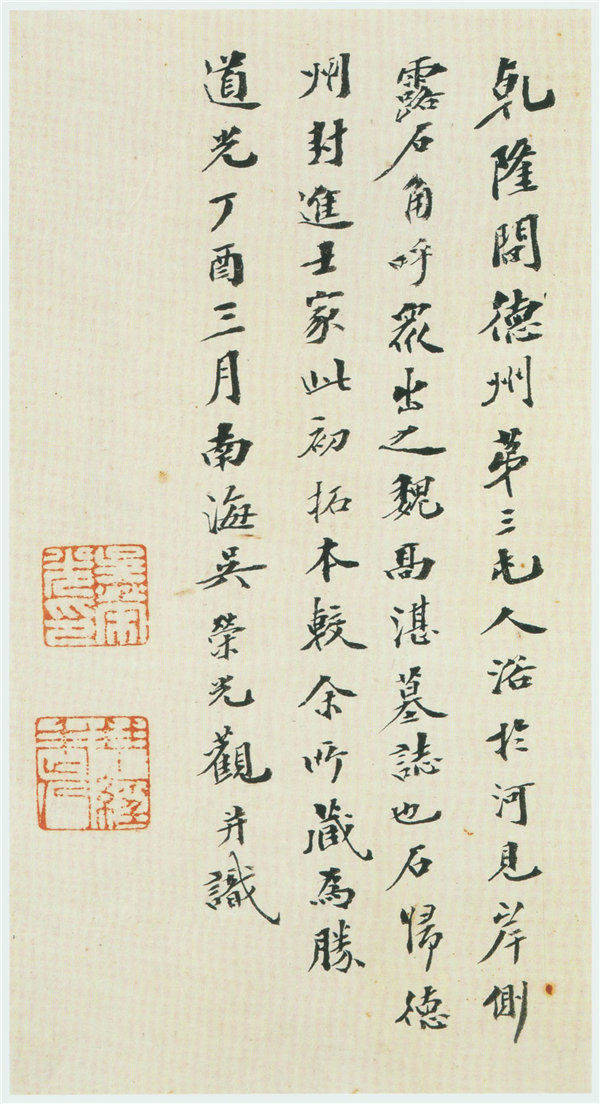 乾隆間德州第三屯人浴於河見岸側
露石角呼眾出之魏高湛墓誌也石歸德
州封進士家此初拓本較余所藏為勝
道光丁酉三月南海吳榮光觀并識
吳榮光印
拜經老人